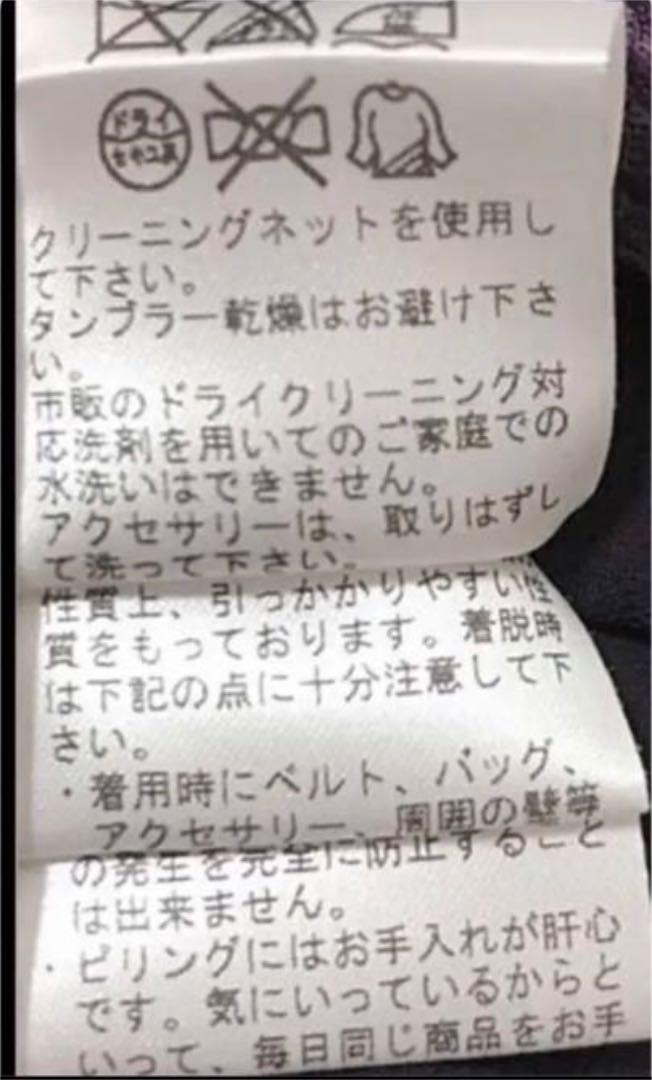 ドライ
セキユ系
クリーニングネットを使用し
て下さい。
タンブラー乾燥はお避け下さ
い。
市販のドライクリーニング対
応洗剤を用いてのご家庭での
水洗いはできません。
アクセサリーは、取りはずし
て洗って下さい。
性質上、引っかかりやすい性
質をもっております。着脱時
は下記の点に十分注意して下
さい。
・着用時にベルト、バッグ、
アクセサリー、周囲の壁等
の発生を完全に防止すること
は出来ません。
・ピリングにはお手入れが肝心
です。気にいっているからと
いって、毎日同じ商品をお手